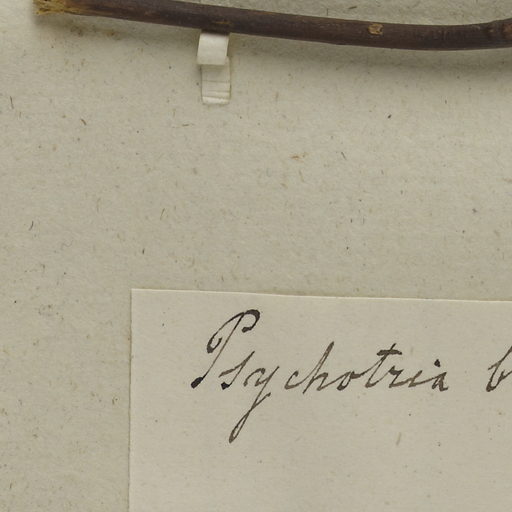 Psychotria b